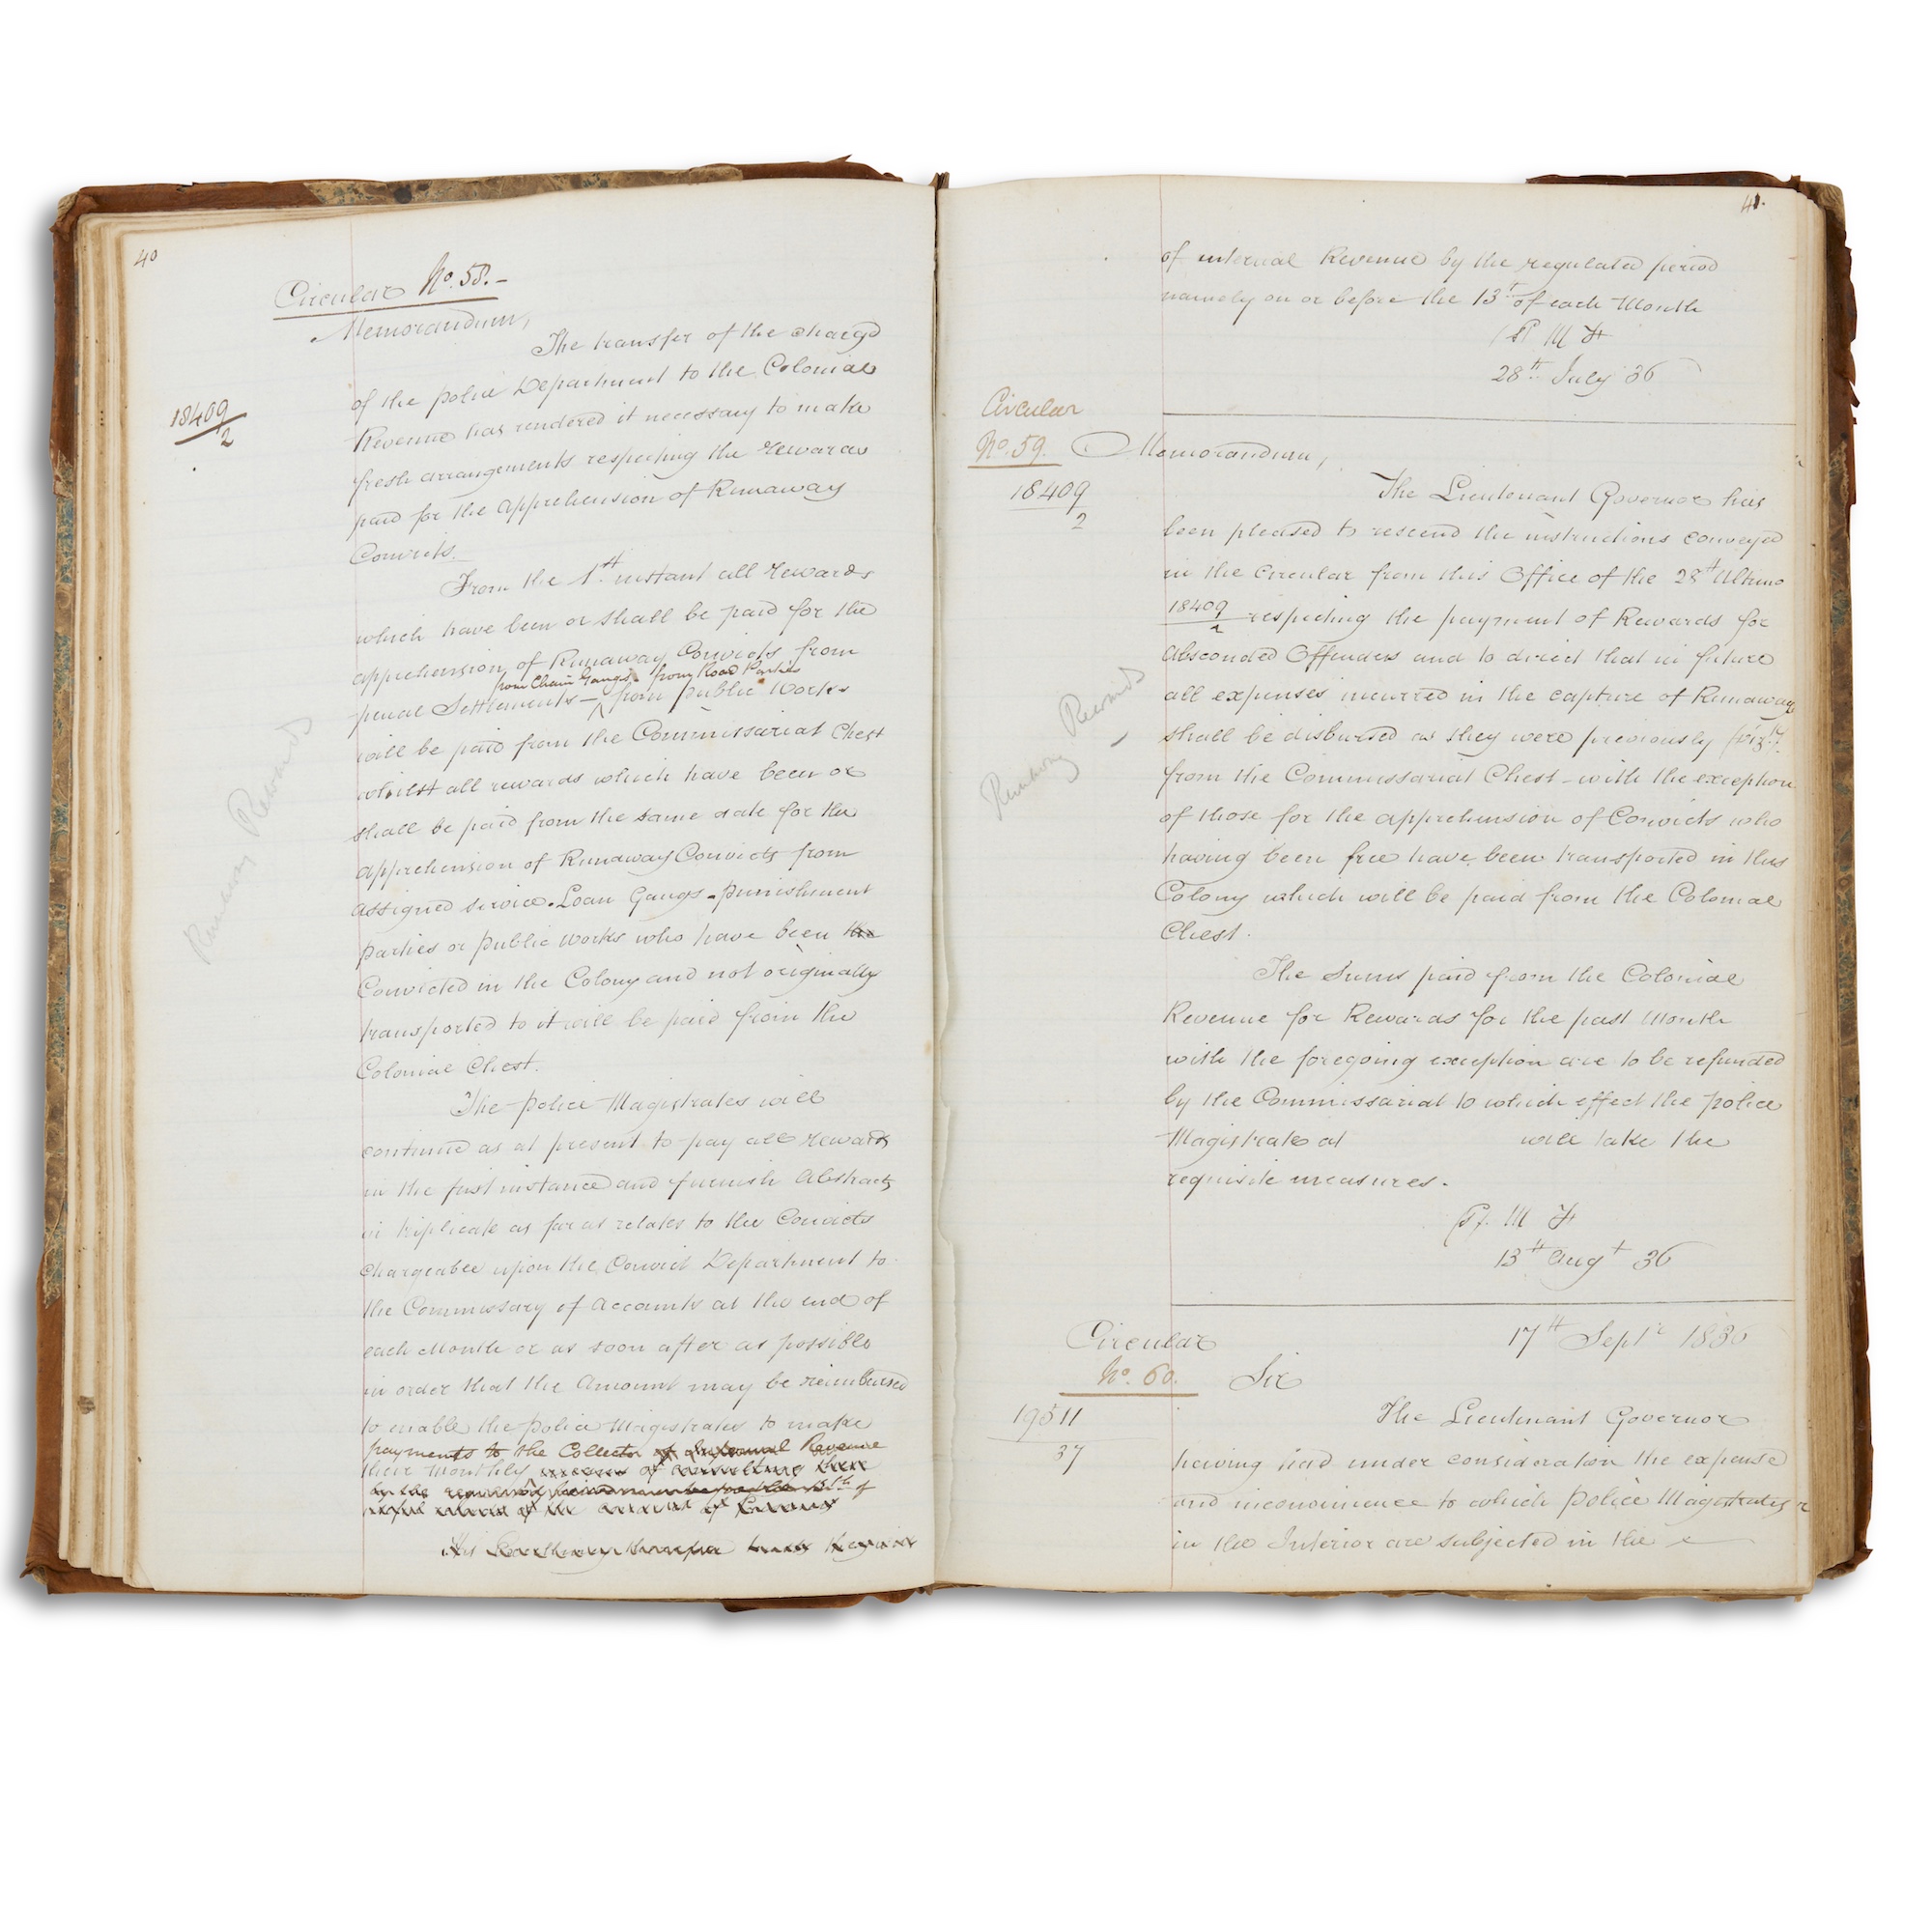 40
Circular No. 58. -
Memorandum,
The transfer of the charge
of the police Department to the Colonial
18409/2
Revenue has rendered it necessary to make
fresh arrangements respecting the rewards
paid for the apprehension of Runaway
Convicts.
From the 1st instant all rewards
which have been or shall be paid for the
apprehension of Runaway Convicts from
from Chain Gangs. from Road Parties
penal Settlements - from public works
will be paid from the Commissariat Chest
whilst all rewards which have been or
shall be paid from the same date for the
apprehension of Runaway Convicts from
assigned service. Loan Gangs - punishment
parties or public works who have been the
Convicted in the Colony and not originally
transported to it will be paid from the
Colonial Chest.
The police Magistrates will
continue as at present to pay all rewards
in the first instance and furnish Abstracts
in triplicate as far as relates to the Convicts
chargeable upon the Convict Department to
the Commissary of Accounts at the end of
each Month or as soon after as possible
in order that the Amount may be reimbursed
to enable the police Magistrates to make
payments to the Collector of Internal Revenue
their monthly
by the 13th of
Runaway Rewards
41.
of internal Revenue by the regulated period
namely on or before the 13th of each Month
M F
28th July 36
Circular
No. 59. Memorandum,
18409
2
The Lieutenant Governor has
been pleased to rescind the instructions conveyed
in the Circular from this Office of the 28th Ultimo
18409/2 respecting the payment of Rewards for
Absconded Offenders and to direct that in future
all expenses incurred in the capture of Runaways
shall be disbursed as they were previously
from the Commissariat Chest - with the exception
of those for the apprehension of Convicts who
having been free have been transported in this
Colony which will be paid from the Colonial
Chest.
Runaway Rewards
The Sums paid from the Colonial
Revenue for Rewards for the past Month
with the foregoing exception are to be refunded
by the Commissariat to which effect the police
Magistrate at will take the
requisite measures.
M F
13th Augt 36
Circular 17th Septr 1836
No. 60. Sir
19511
37
The Lieutenant Governor
having had under consideration the expense
and inconvenience to which police Magistrates
in the Interior are subjected in the